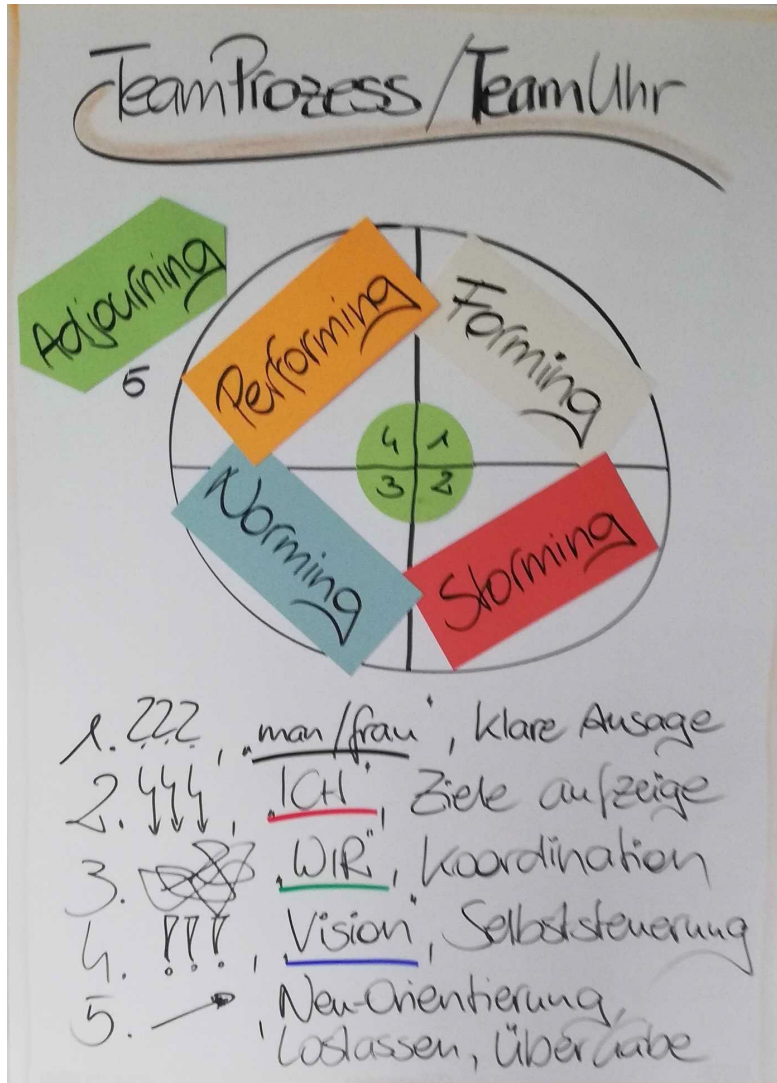 TeamProzess/TeamUhr
Adjourning
5
Performing
Forming
4 1
3 2
Norming
Storming
1. ???, „man/frau", klare Ausage
2. , „ICH", Ziele aufzeige
3. „WIR", Koordination
4. !!!, „Vision", Selbststeuerung
5. , Neu-Orientierung,
Loslassen, Übergabe